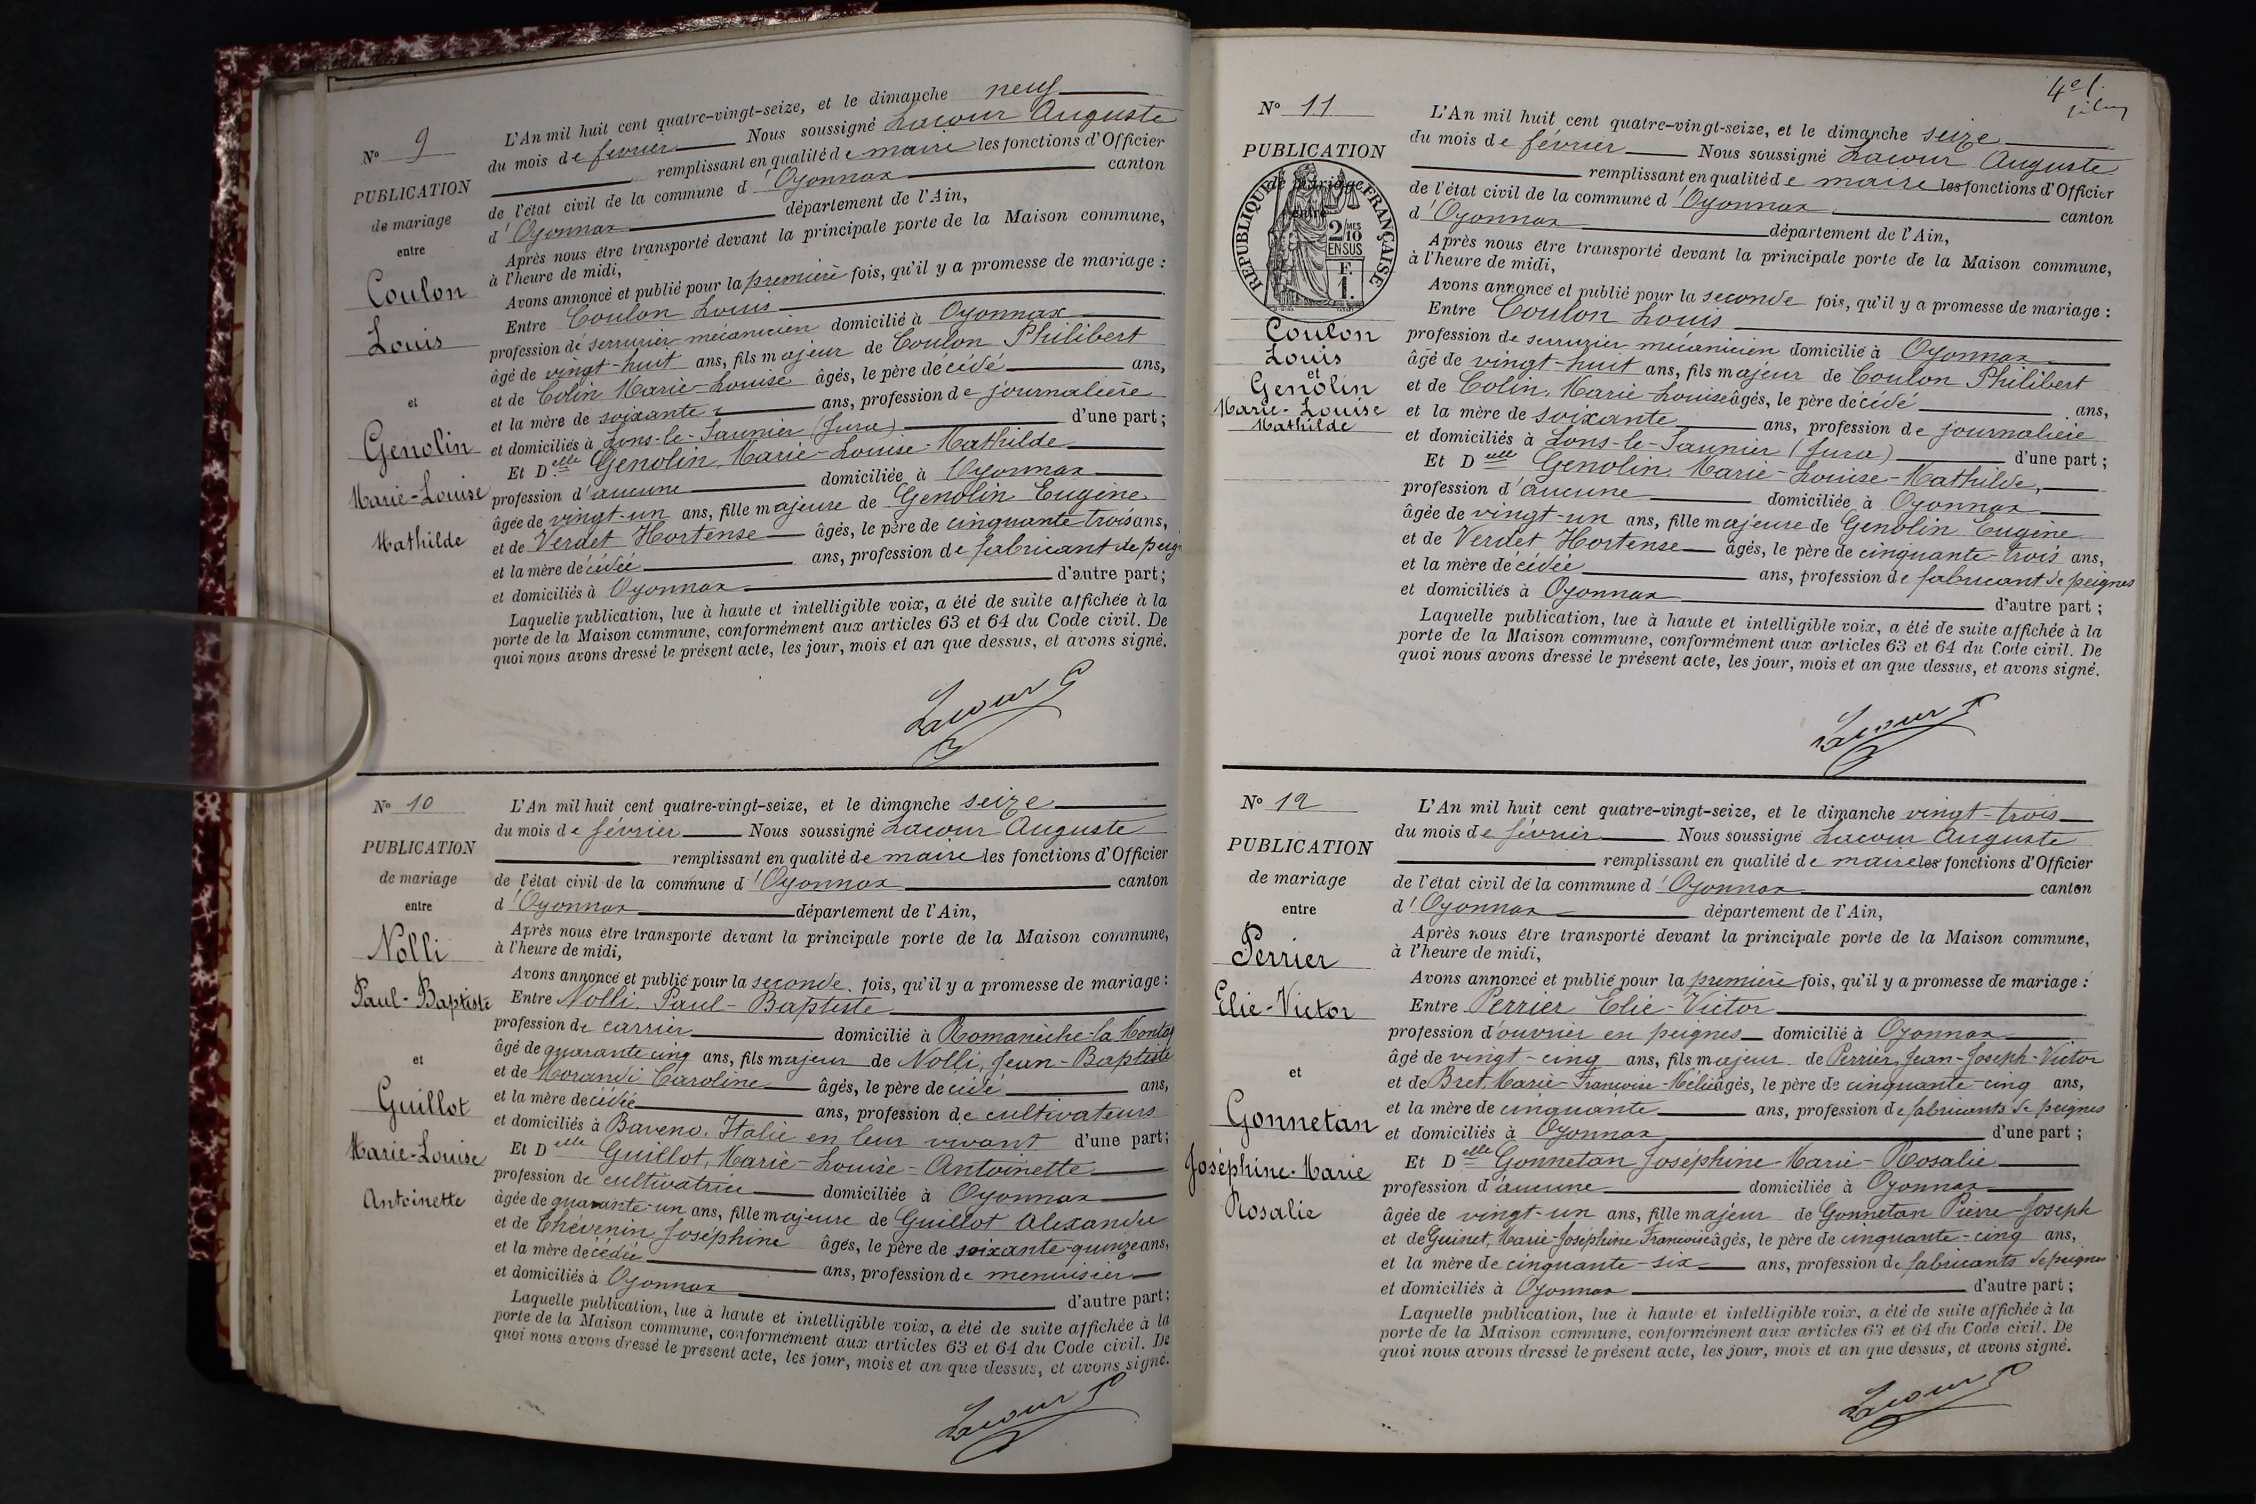 N° 9
PUBLICATION
de mariage
entre
Coulon
Louis
et
Genolin
Marie-Louise
Mathilde
L'An mil huit cent quatre-vingt-seize, et le dimanche neuf
du mois de février Nous soussigné Lacour Auguste
remplissant en qualité de maire les fonctions d'Officier
de l'état civil de la commune d'Oyonnax canton
d'Oyonnax département de l'Ain,
Après nous être transporté devant la principale porte de la Maison commune,
à l'heure de midi,
Avons annoncé et publié pour la première fois, qu'il y a promesse de mariage :
Entre Coulon Louis
profession de serrurier-mécanicien domicilié à Oyonnax
âgé de vingt-huit ans, fils majeur de Coulon Philibert
et de Colin Marie-Louise âgés, le père décédé ans,
et la mère de soixante ans, profession de journalière
et domiciliés à Lons-le-Saunier (Jura) d'une part ;
Et Delle Genolin, Marie-Louise-Mathilde
profession d'aucune domiciliée à Oyonnax
âgée de vingt-un ans, fille majeure de Genolin Eugène
et de Verdet Hortense âgés, le père de cinquante trois ans,
et la mère décédée ans, profession de fabricant de peign
et domiciliés à Oyonnax d'autre part ;
Laquelle publication, lue à haute et intelligible voix, a été de suite affichée à la
porte de la Maison commune, conformément aux articles 63 et 64 du Code civil. De
quoi nous avons dressé le présent acte, les jour, mois et an que dessus, et avons signé.
Lacour
N° 10
PUBLICATION
de mariage
entre
Nolli
Paul-Baptiste
et
Guillot
Marie-Louise
Antoinette
L'An mil huit cent quatre-vingt-seize, et le dimanche seize
du mois de février Nous soussigné Lacour Auguste
remplissant en qualité de maire les fonctions d'Officier
de l'état civil de la commune d'Oyonnax canton
d'Oyonnax département de l'Ain,
Après nous être transporté devant la principale porte de la Maison commune,
à l'heure de midi,
Avons annoncé et publié pour la seconde fois, qu'il y a promesse de mariage :
Entre Nolli, Paul-Baptiste
profession de carrier domicilié à Romanèche-la-Montag
âgé de quarante cinq ans, fils majeur de Nolli, Jean-Baptiste
et de Morandi Caroline âgés, le père décédé ans,
et la mère décédée ans, profession de cultivateurs
et domiciliés à Baveno, Italie en leur vivant d'une part ;
Et Delle Guillot, Marie-Louise-Antoinette
profession de cultivatrice domiciliée à Oyonnax
âgée de quarante-un ans, fille majeure de Guillot Alexandre
et de Thévenin Joséphine âgés, le père de soixante-quinze ans,
et la mère décédée ans, profession de menuisier
et domiciliés à Oyonnax d'autre part ;
Laquelle publication, lue à haute et intelligible voix, a été de suite affichée à la
porte de la Maison commune, conformément aux articles 63 et 64 du Code civil. De
quoi nous avons dressé le présent acte, les jour, mois et an que dessus, et avons signé.
Lacour
4e f.
N° 11
PUBLICATION
de mariage
entre
RÉPUBLIQUE FRANÇAISE
2/10MES
EN SUS
F.
1.
Coulon
Louis
et
Genolin
Marie-Louise
Mathilde
L'An mil huit cent quatre-vingt-seize, et le dimanche seize
du mois de février Nous soussigné Lacour Auguste
remplissant en qualité de maire les fonctions d'Officier
de l'état civil de la commune d'Oyonnax canton
d'Oyonnax département de l'Ain,
Après nous être transporté devant la principale porte de la Maison commune,
à l'heure de midi,
Avons annoncé et publié pour la seconde fois, qu'il y a promesse de mariage :
Entre Coulon Louis
profession de serrurier mécanicien domicilié à Oyonnax
âgé de vingt-huit ans, fils majeur de Coulon Philibert
et de Colin, Marie-Louise âgés, le père décédé ans,
et la mère de soixante ans, profession de journalière
et domiciliés à Lons-le-Saunier (Jura) d'une part ;
Et Delle Genolin, Marie-Louise-Mathilde,
profession d'aucune domiciliée à Oyonnax
âgée de vingt-un ans, fille majeure de Genolin Eugène
et de Verdet Hortense âgés, le père de cinquante-trois ans,
et la mère décédée ans, profession de fabricant de peignes
et domiciliés à Oyonnax d'autre part ;
Laquelle publication, lue à haute et intelligible voix, a été de suite affichée à la
porte de la Maison commune, conformément aux articles 63 et 64 du Code civil. De
quoi nous avons dressé le présent acte, les jour, mois et an que dessus, et avons signé.
Lacour
N° 12
PUBLICATION
de mariage
entre
Perrier
Elie-Victor
et
Gonnetan
Joséphine-Marie
Rosalie
L'An mil huit cent quatre-vingt-seize, et le dimanche vingt-trois
du mois de février Nous soussigné Lacour Auguste
remplissant en qualité de maire les fonctions d'Officier
de l'état civil de la commune d'Oyonnax canton
d'Oyonnax département de l'Ain,
Après nous être transporté devant la principale porte de la Maison commune,
à l'heure de midi,
Avons annoncé et publié pour la première fois, qu'il y a promesse de mariage :
Entre Perrier Elie-Victor
profession d'ouvrier en peignes domicilié à Oyonnax
âgé de vingt-cinq ans, fils majeur de Perrier, Jean-Joseph-Victor
et de Bret, Marie-Françoise-Mélie âgés, le père de cinquante-cinq ans,
et la mère de cinquante ans, profession de fabricants de peignes
et domiciliés à Oyonnax d'une part ;
Et Delle Gonnetan Joséphine-Marie-Rosalie
profession d'aucune domiciliée à Oyonnax
âgée de vingt-un ans, fille majeur de Gonnetan Pierre-Joseph
et de Guinet, Marie-Joséphine Françoise âgés, le père de cinquante-cinq ans,
et la mère de cinquante-six ans, profession de fabricants de peignes
et domiciliés à Oyonnax d'autre part ;
Laquelle publication, lue à haute et intelligible voix, a été de suite affichée à la
porte de la Maison commune, conformément aux articles 63 et 64 du Code civil. De
quoi nous avons dressé le présent acte, les jour, mois et an que dessus, et avons signé.
Lacour